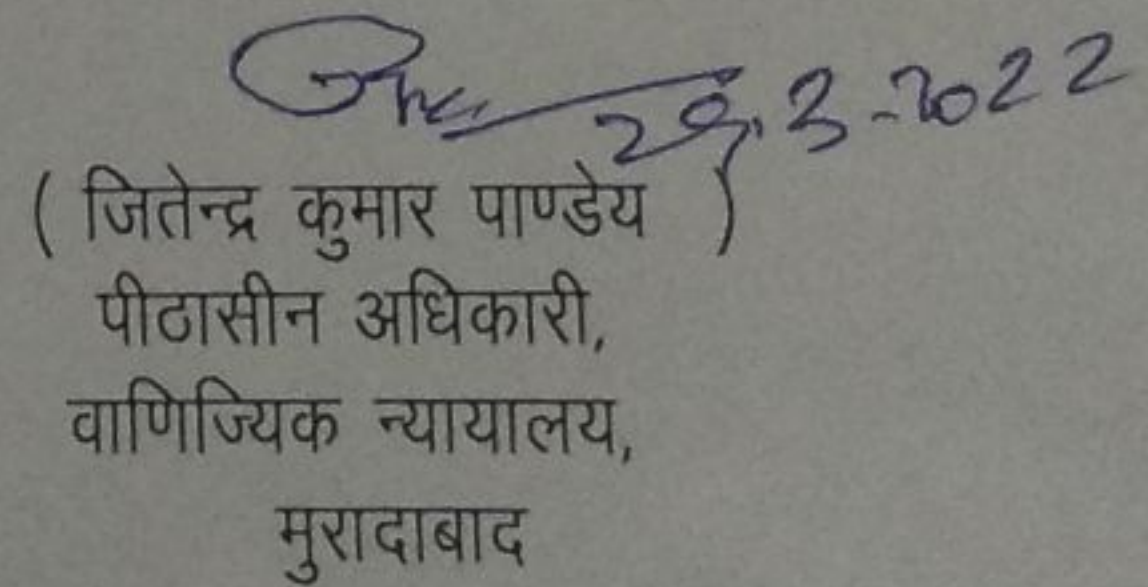 29.3-2022
( जितेन्द्र कुमार पाण्डेय )
पीठासीन अधिकारी,
वाणिज्यिक न्यायालय,
मुरादाबाद